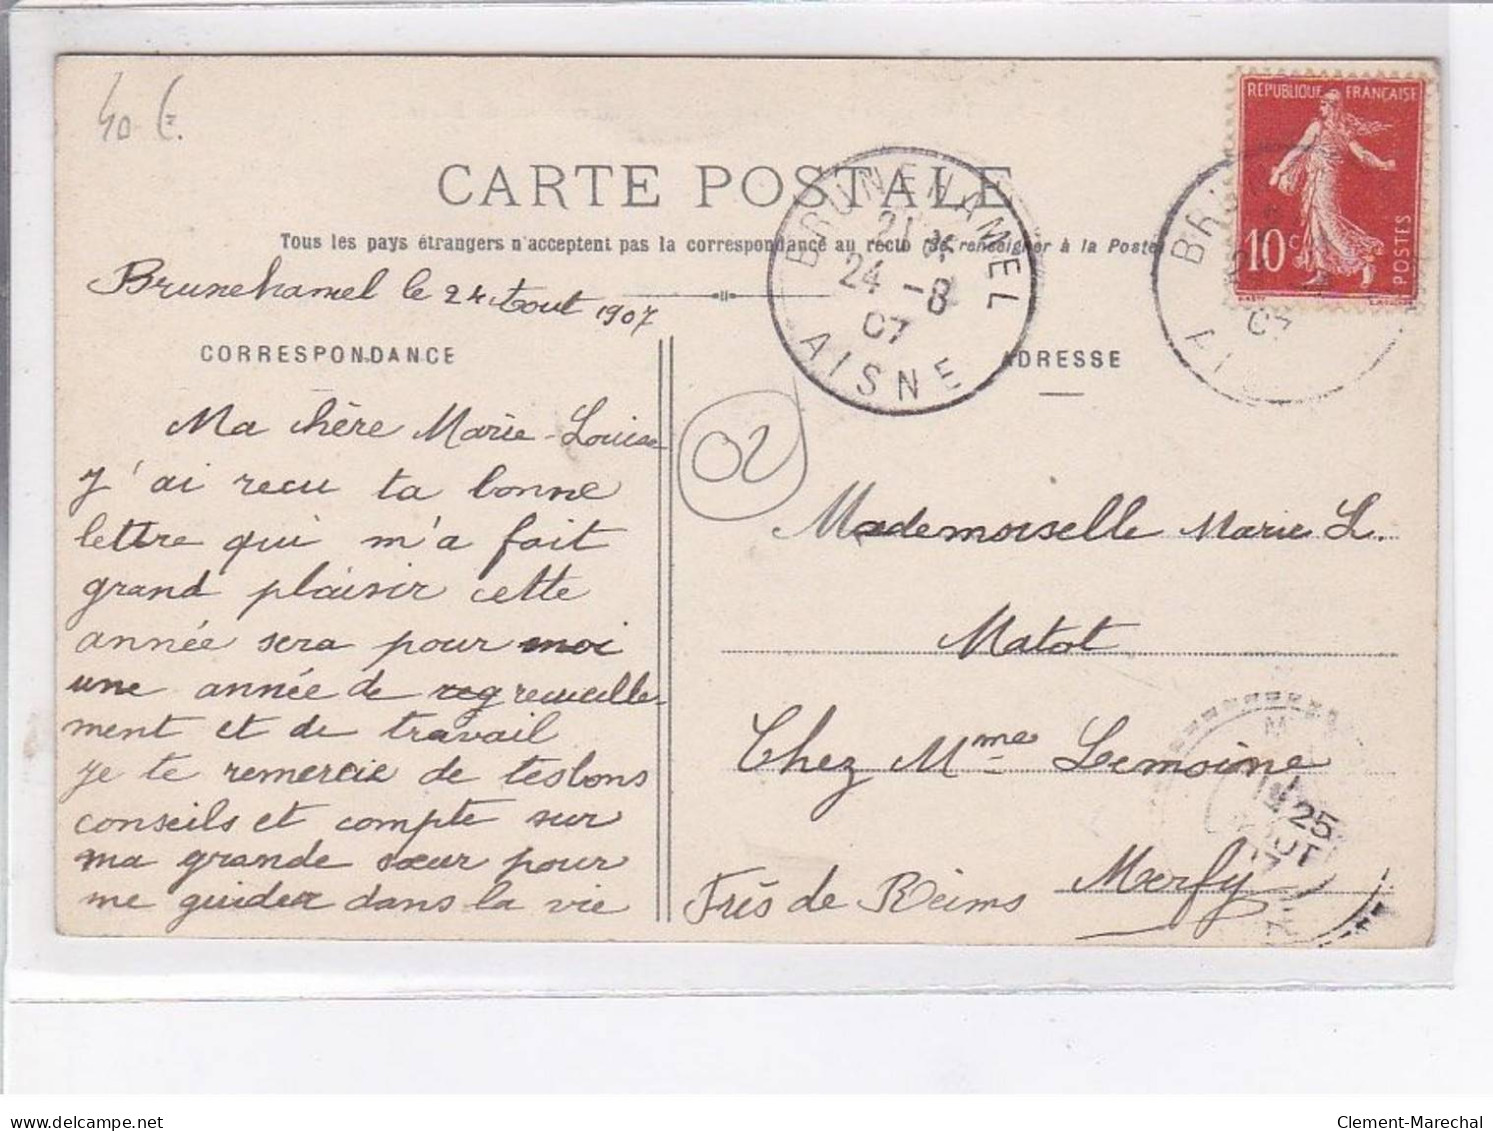 40 €.
CARTE POSTALE
Tous les pays étrangers n'acceptent pas la correspondance au recto (Se renseigner à la Poste)
Brunehamel le 24 Aout 1907
CORRESPONDANCE
Ma chère Marie-Louise
J'ai recu ta bonne
lettre qui m'a fait
grand plaisir cette
année sera pour moi
une année de recueille-
ment et de travail
je te remercie de tes bons
conseils et compte sur
ma grande sœur pour
me guider dans la vie
BRUNEHAMEL
21
24 -8
07
AISNE
REPUBLIQUE FRANÇAISE
10 c
POSTES
BRU
07
AI
ADRESSE
02
Mademoiselle Marie L.
Matot
Chez Mme Lemoine
Merfy
Près de Reims
M
25
AOUT
Clement-Marechal
delcampe.net